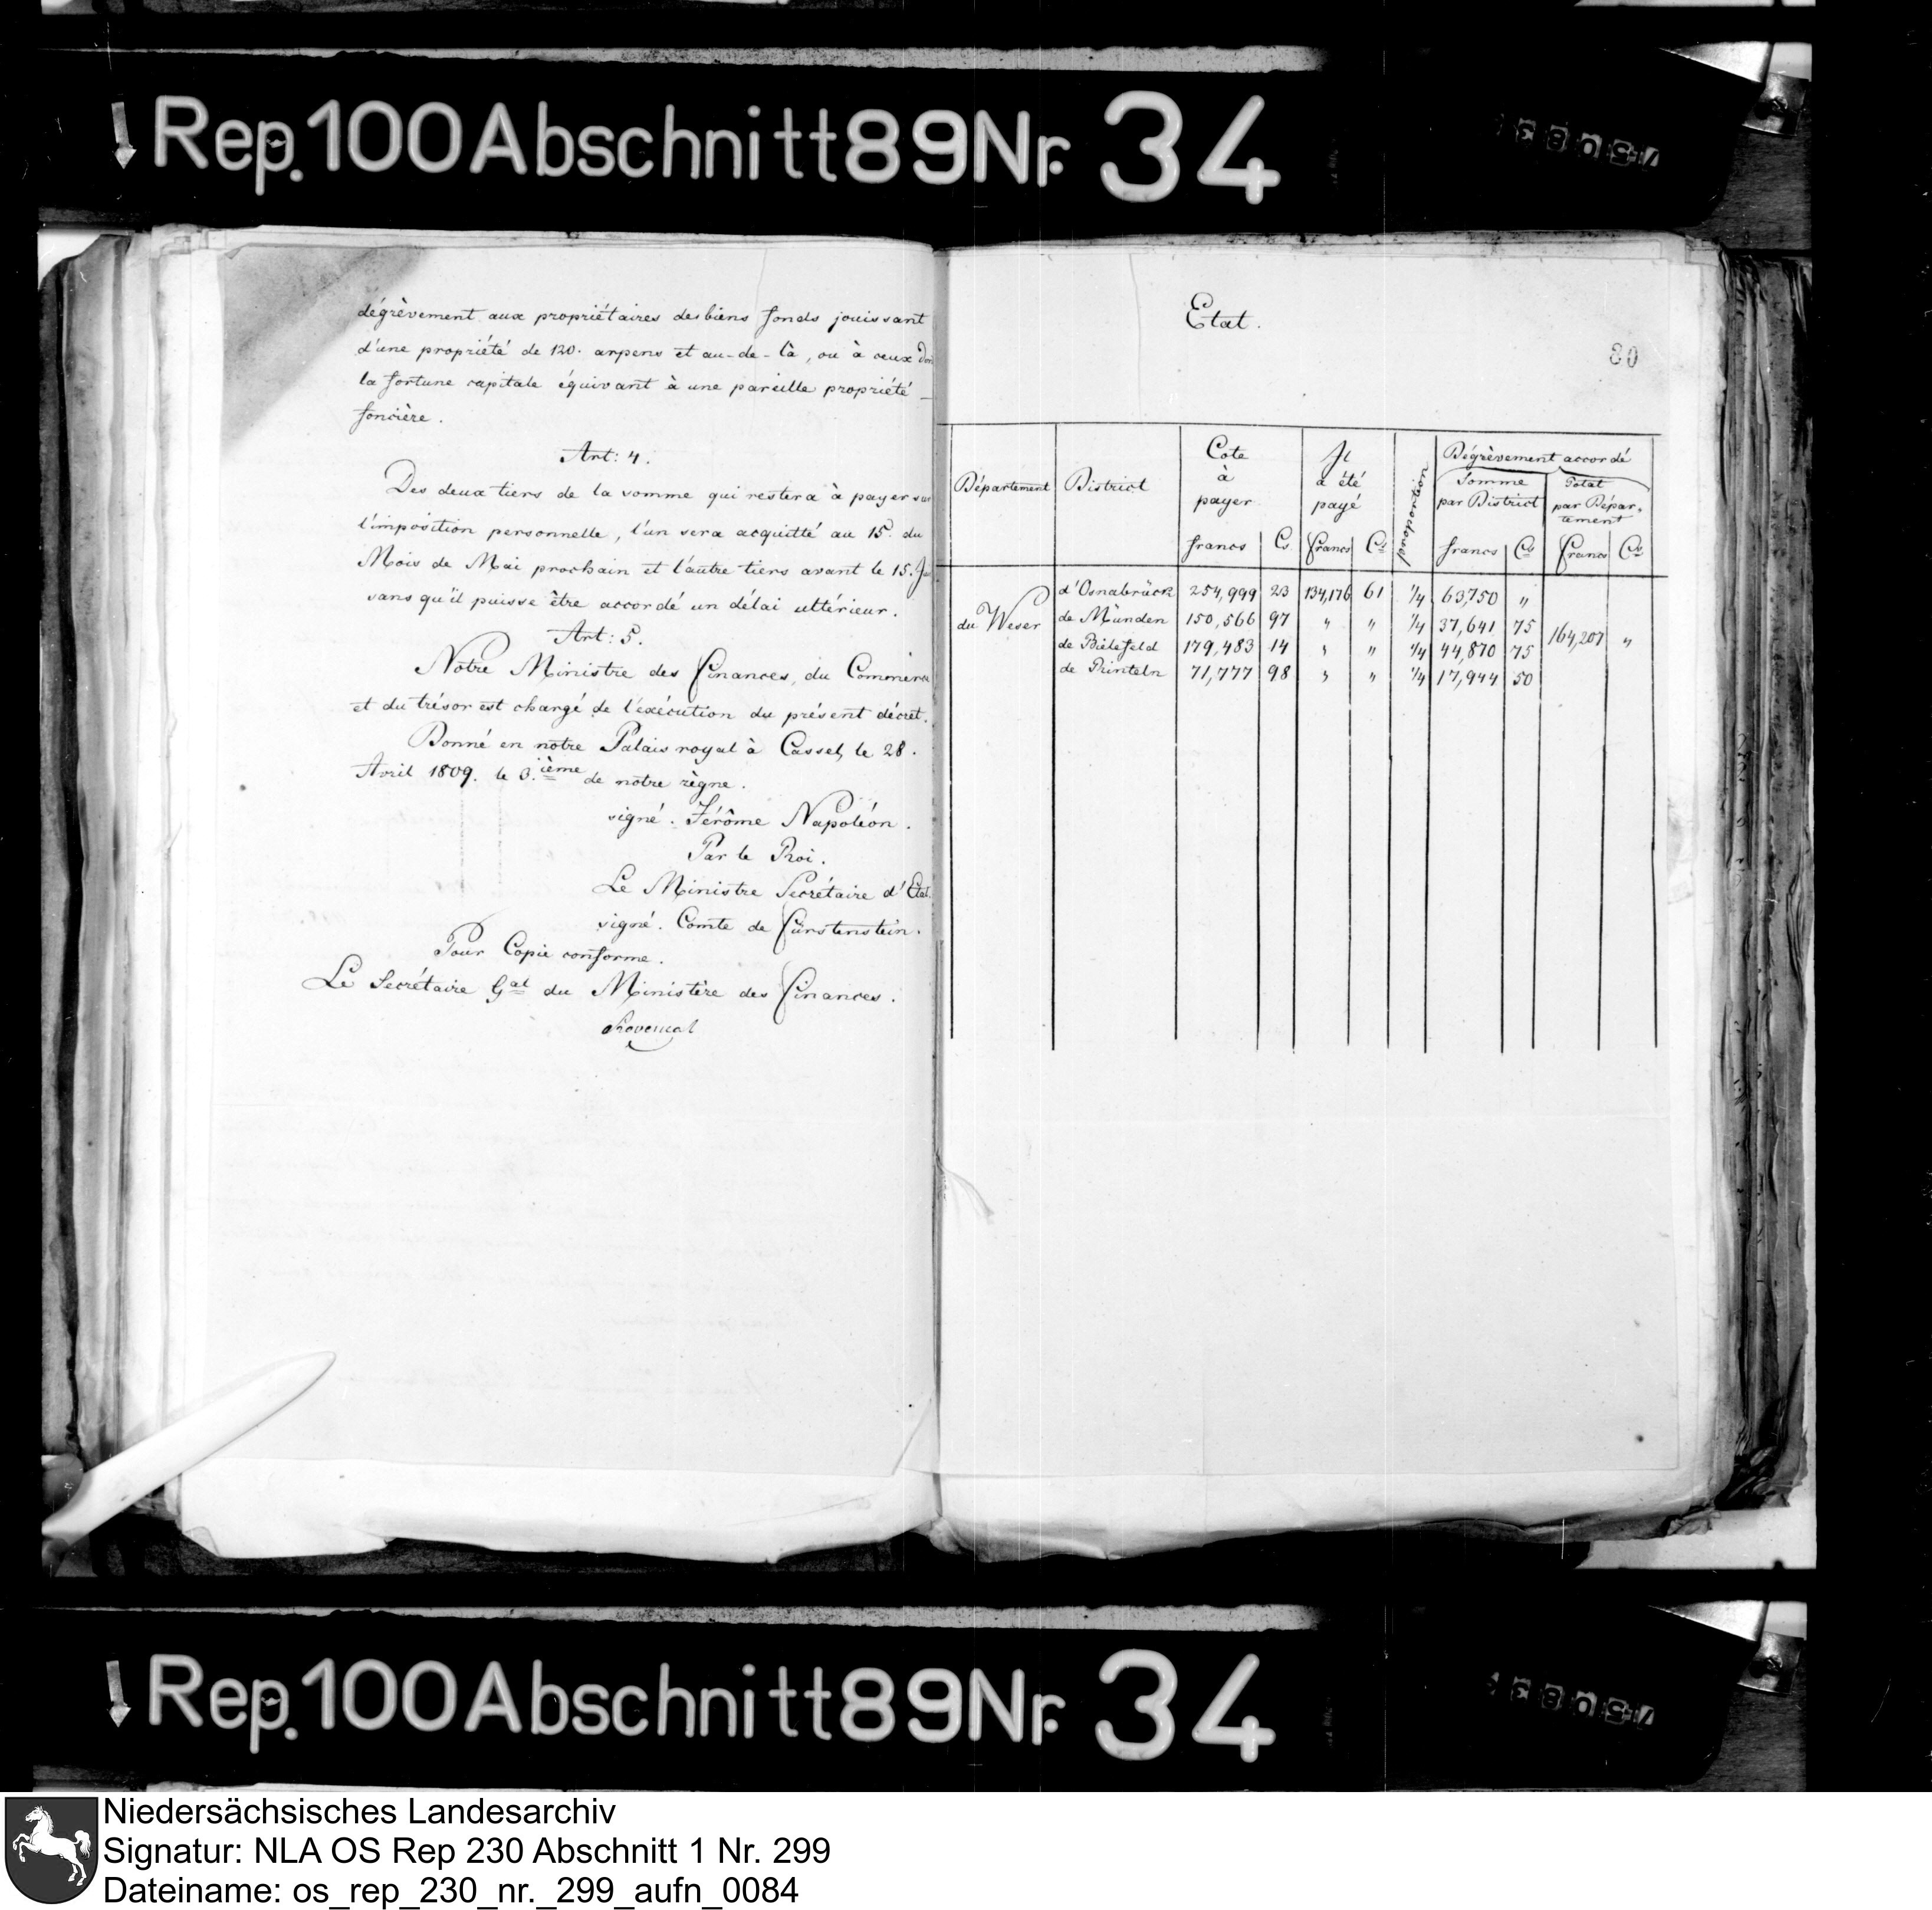 Rep. 100 Abschnitt 89 Nr. 34
dégrèvement aux propriétaires des biens fonds jouissant
d'une propriété de 120. arpens et au-de-là, ou à ceux
la fortune capitale équivant à une pareille propriété
foncière.
Art: 4.
Des deux tiers de la somme qui restera à payer sur
l'imposition personnelle, l'un sera acquitté au 15. du
Mois de Mai prochain et l'autre tiers avant le 15.
sans qu'il puisse être accordé un délai ultérieur.
Art: 5.
Notre Ministre des Finances, du Commerce
et du trésor est chargé de l'exécution du présent décret.
Donné en notre Palais royal à Cassel, le 28.
Avril 1809. le 3.ième de notre règne.
signé. Jérôme Napoléon.
Par le Roi.
Le Ministre Secrétaire d'Etat.
signé. Comte de Fürstenstein.
Pour Copie conforme.
Le Secrétaire Gal du Ministère des Finances.
Provençal
Etat.
80
Département District Cote à payer Il a été payé proportion Dégrèvement accordé
Somme par District Total par Département
francs Cs francs Cs francs Cs francs Cs
du Weser
d'Osnabrück 254,999 23 134,176 61 1/4 63,750 "
de Münden 150,566 97 " " 1/4 37,641 75
de Bielefeld 179,483 14 " " 1/4 44,870 75
de Rinteln 71,777 98 " " 1/4 17,944 50
164,207 "
Rep. 100 Abschnitt 89 Nr. 34
Niedersächsisches Landesarchiv
Signatur: NLA OS Rep 230 Abschnitt 1 Nr. 299
Dateiname: os_rep_230_nr._299_aufn_0084